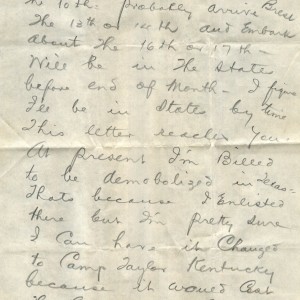 the 10th. probably arrive Brest
The 13th or 14th and Embark
about The 16th or 17th -
Will be in The States
before end of Month - I figure
I'll be in States by time
This letter reaches You.
At present I'm Billed
to be demobolized in Texas-
Thats because I Enlisted
there but I'm pretty sure
I Can have it Changed
to Camp Taylor Kentucky
because it would Cost